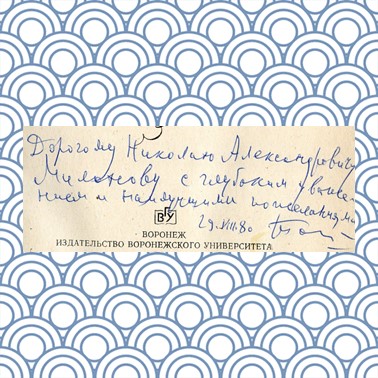 Дорогому Николаю Александровичу
Милонову с глубоким уваже-
нием и наилучшими пожеланиями
29.VIII.80
ВГУ
ВОРОНЕЖ
ИЗДАТЕЛЬСТВО ВОРОНЕЖСКОГО УНИВЕРСИТЕТА